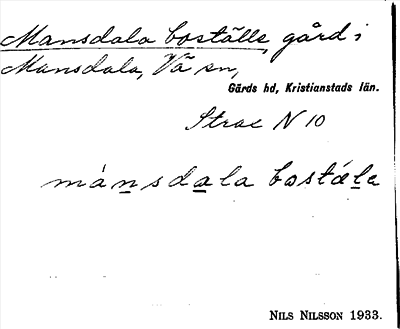 Mansdala boställe, gård i
Mansdala, Vä sn,
Gärds hd, Kristianstads län.
Strae N 10
mánsdala bostäla
NILS NILSSON 1933.